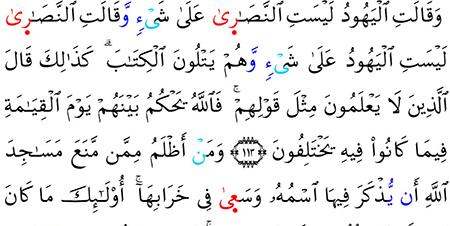 وَقَالَتِ ٱلْيَهُودُ لَيْسَتِ ٱلنَّصَٰرَىٰ عَلَىٰ شَىْءٍ وَّقَالَتِ ٱلنَّصَٰرَىٰ
لَيْسَتِ ٱلْيَهُودُ عَلَىٰ شَىْءٍ وَّهُمْ يَتْلُونَ ٱلْكِتَٰبَ ۗ كَذَٰلِكَ قَالَ
ٱلَّذِينَ لَا يَعْلَمُونَ مِثْلَ قَوْلِهِمْ ۚ فَٱللَّهُ يَحْكُمُ بَيْنَهُمْ يَوْمَ ٱلْقِيَٰمَةِ
فِيمَا كَانُوا۟ فِيهِ يَخْتَلِفُونَ ﴿١١٣﴾ وَمَنْ أَظْلَمُ مِمَّن مَّنَعَ مَسَٰجِدَ
ٱللَّهِ أَن يُّذْكَرَ فِيهَا ٱسْمُهُۥ وَسَعَىٰ فِى خَرَابِهَآ ۚ أُو۟لَٰٓئِكَ مَا كَانَ